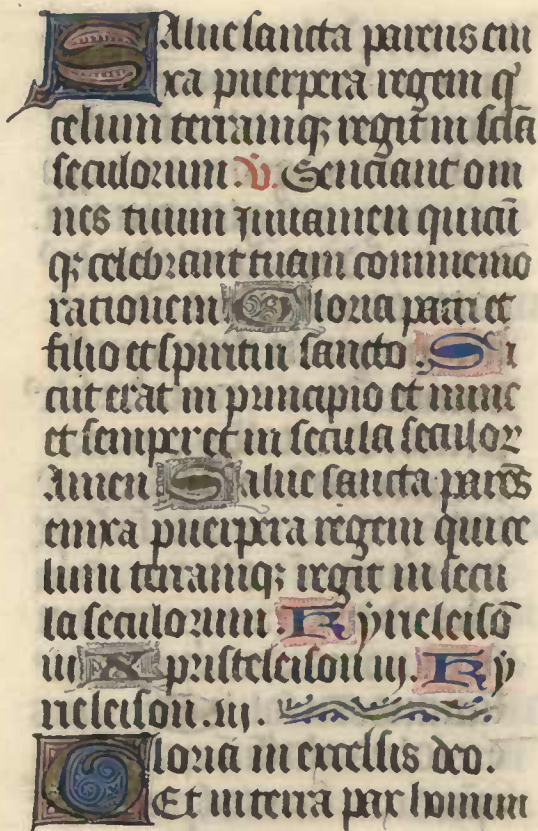 Salue sancta parens eni
xa puerpera regem q̄
celum terramq; regit in sc̄la
seculorum. V̄. Senciant om
nes tuum Juuamen quicū
q; celebrant tuam commemo
rationem Gloria patri et
filio et spiritui sancto Si
cut erat in principio et nunc
et semper et in secula seculoꝝ
Amen Salue sancta parēs
enixa puerpera regem qui ce
lum terramq; regit in secu
la seculorum. Kyrieleisō
iij Xpristeleison iij. Ky
rieleison. iij.
Gloria in excelsis deo.
Et in terra pax homini